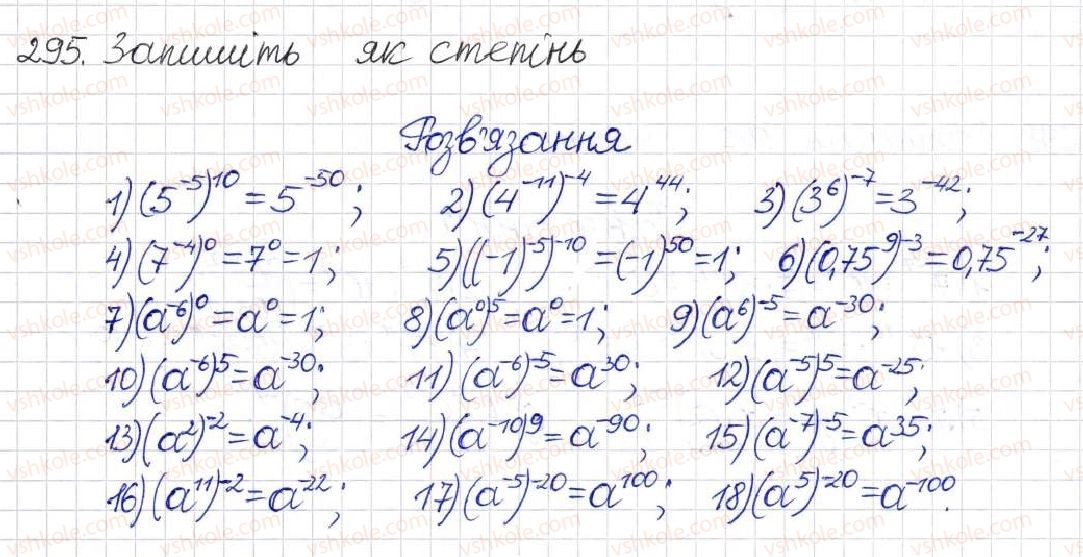 295. Запишіть як степінь
Розв'язання
1) (5⁻⁵)¹⁰ = 5⁻⁵⁰; 2) (4⁻¹¹)⁻⁴ = 4⁴⁴; 3) (3⁶)⁻⁷ = 3⁻⁴²;
4) (7⁻⁴)⁰ = 7⁰ = 1; 5) ((-1)⁻⁵)⁻¹⁰ = (-1)⁵⁰ = 1; 6) (0,75⁹)⁻³ = 0,75⁻²⁷;
7) (a⁻⁶)⁰ = a⁰ = 1; 8) (a⁰)⁵ = a⁰ = 1; 9) (a⁶)⁻⁵ = a⁻³⁰;
10) (a⁻⁶)⁵ = a⁻³⁰; 11) (a⁻⁶)⁻⁵ = a³⁰; 12) (a⁻⁵)⁵ = a⁻²⁵;
13) (a²)⁻² = a⁻⁴; 14) (a⁻¹⁰)⁹ = a⁻⁹⁰; 15) (a⁻⁷)⁻⁵ = a³⁵;
16) (a¹¹)⁻² = a⁻²²; 17) (a⁻⁵)⁻²⁰ = a¹⁰⁰; 18) (a⁵)⁻²⁰ = a⁻¹⁰⁰.
vshkole.com